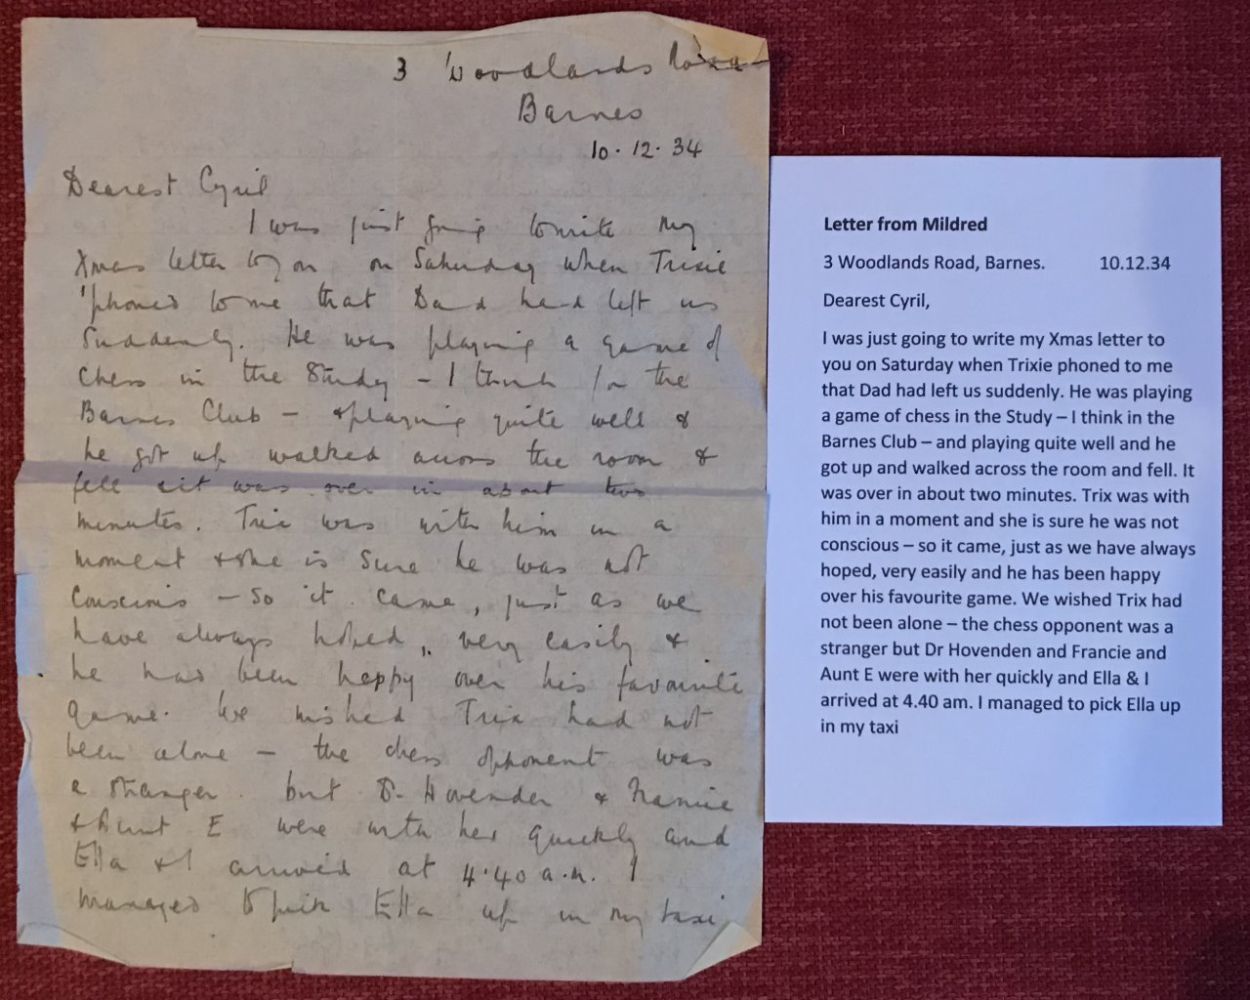 3 Woodlands Road
Barnes
10.12.34
Dearest Cyril
I was just going to write my
Xmas letter to you on Saturday when Trixie
'phoned to me that Dad had left us
suddenly. He was playing a game of
chess in the Study - I think for the
Barnes Club - & playing quite well &
he got up walked across the room &
fell & it was over in about two
minutes. Trix was with him in a
moment & she is sure he was not
conscious - so it came, just as we
have always hoped, very easily &
he had been happy over his favourite
game. We wished Trix had not
been alone - the chess opponent was
a stranger. but Dr Hovenden & Francie
& Aunt E were with her quickly and
Ella & I arrived at 4.40 a.m. I
managed to pick Ella up in my taxi
Letter from Mildred
3 Woodlands Road, Barnes. 10.12.34
Dearest Cyril,
I was just going to write my Xmas letter to
you on Saturday when Trixie phoned to me
that Dad had left us suddenly. He was playing
a game of chess in the Study – I think in the
Barnes Club – and playing quite well and he
got up and walked across the room and fell. It
was over in about two minutes. Trix was with
him in a moment and she is sure he was not
conscious – so it came, just as we have always
hoped, very easily and he has been happy
over his favourite game. We wished Trix had
not been alone – the chess opponent was a
stranger but Dr Hovenden and Francie and
Aunt E were with her quickly and Ella & I
arrived at 4.40 am. I managed to pick Ella up
in my taxi